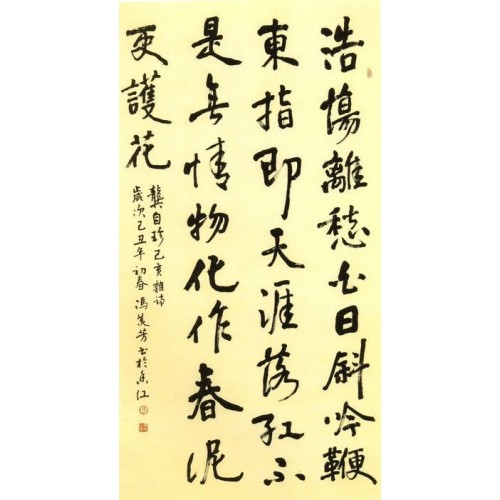 浩蕩離愁白日斜吟鞭
東指即天涯落紅不
是無情物化作春泥
更護花
龔自珍己亥雜詩
歲次己丑年初春馮芳書於香江